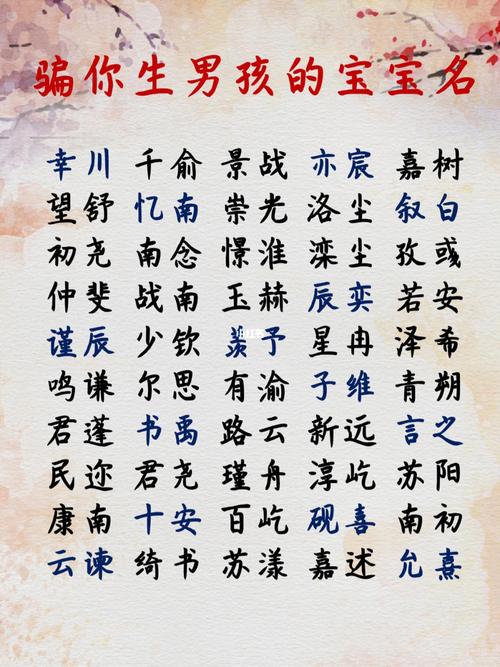 骗你生男孩的宝宝名
幸川 千俞 景战 亦宸 嘉树
望舒 忆南 崇光 洛尘 叙白
初尧 南念 憬淮 滦尘 孜彧
仲斐 战南 玉赫 辰奕 若安
谨辰 少钦 羨予 星冉 泽希
鸣谦 尔思 有渝 子维 青朔
君蓬 书禹 路云 新远 言之
民迩 君尧 瑾舟 淳屹 苏阳
康南 十安 百屹 砚喜 南初
云谏 绮书 苏漾 嘉述 允熹